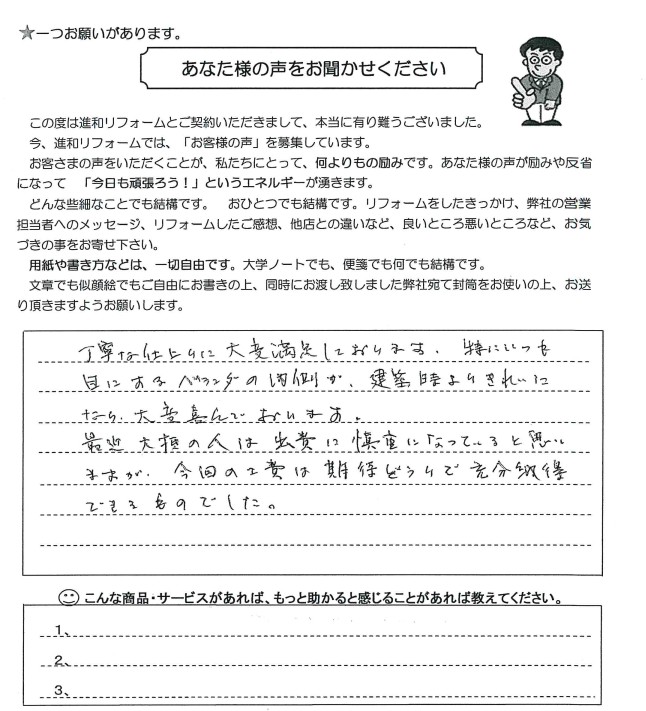 ★一つお願いがあります。
あなた様の声をお聞かせください
この度は進和リフォームとご契約いただきまして、本当に有り難うございました。
今、進和リフォームでは、「お客様の声」を募集しています。
お客さまの声をいただくことが、私たちにとって、何よりもの励みです。あなた様の声が励みや反省
になって 「今日も頑張ろう！」というエネルギーが湧きます。
どんな些細なことでも結構です。 おひとつでも結構です。リフォームをしたきっかけ、弊社の営業
担当者へのメッセージ、リフォームしたご感想、他店との違いなど、良いところ悪いところなど、お気
づきの事をお寄せ下さい。
用紙や書き方などは、一切自由です。大学ノートでも、便箋でも何でも結構です。
文章でも似顔絵でもご自由にお書きの上、同時にお渡し致しました弊社宛て封筒をお使いの上、お送
り頂きますようお願いします。
丁寧な仕上りに大変満足しております。特にいつも
目にするベランダの内側が、建築時よりきれいに
なり、大変喜んでおります。
最近大抵の人は出費に慎重になっていると思い
ますが、今回の工費は期待どうりで充分納得
できるものでした。
こんな商品・サービスがあれば、もっと助かると感じることがあれば教えてください。
1、
2、
3、